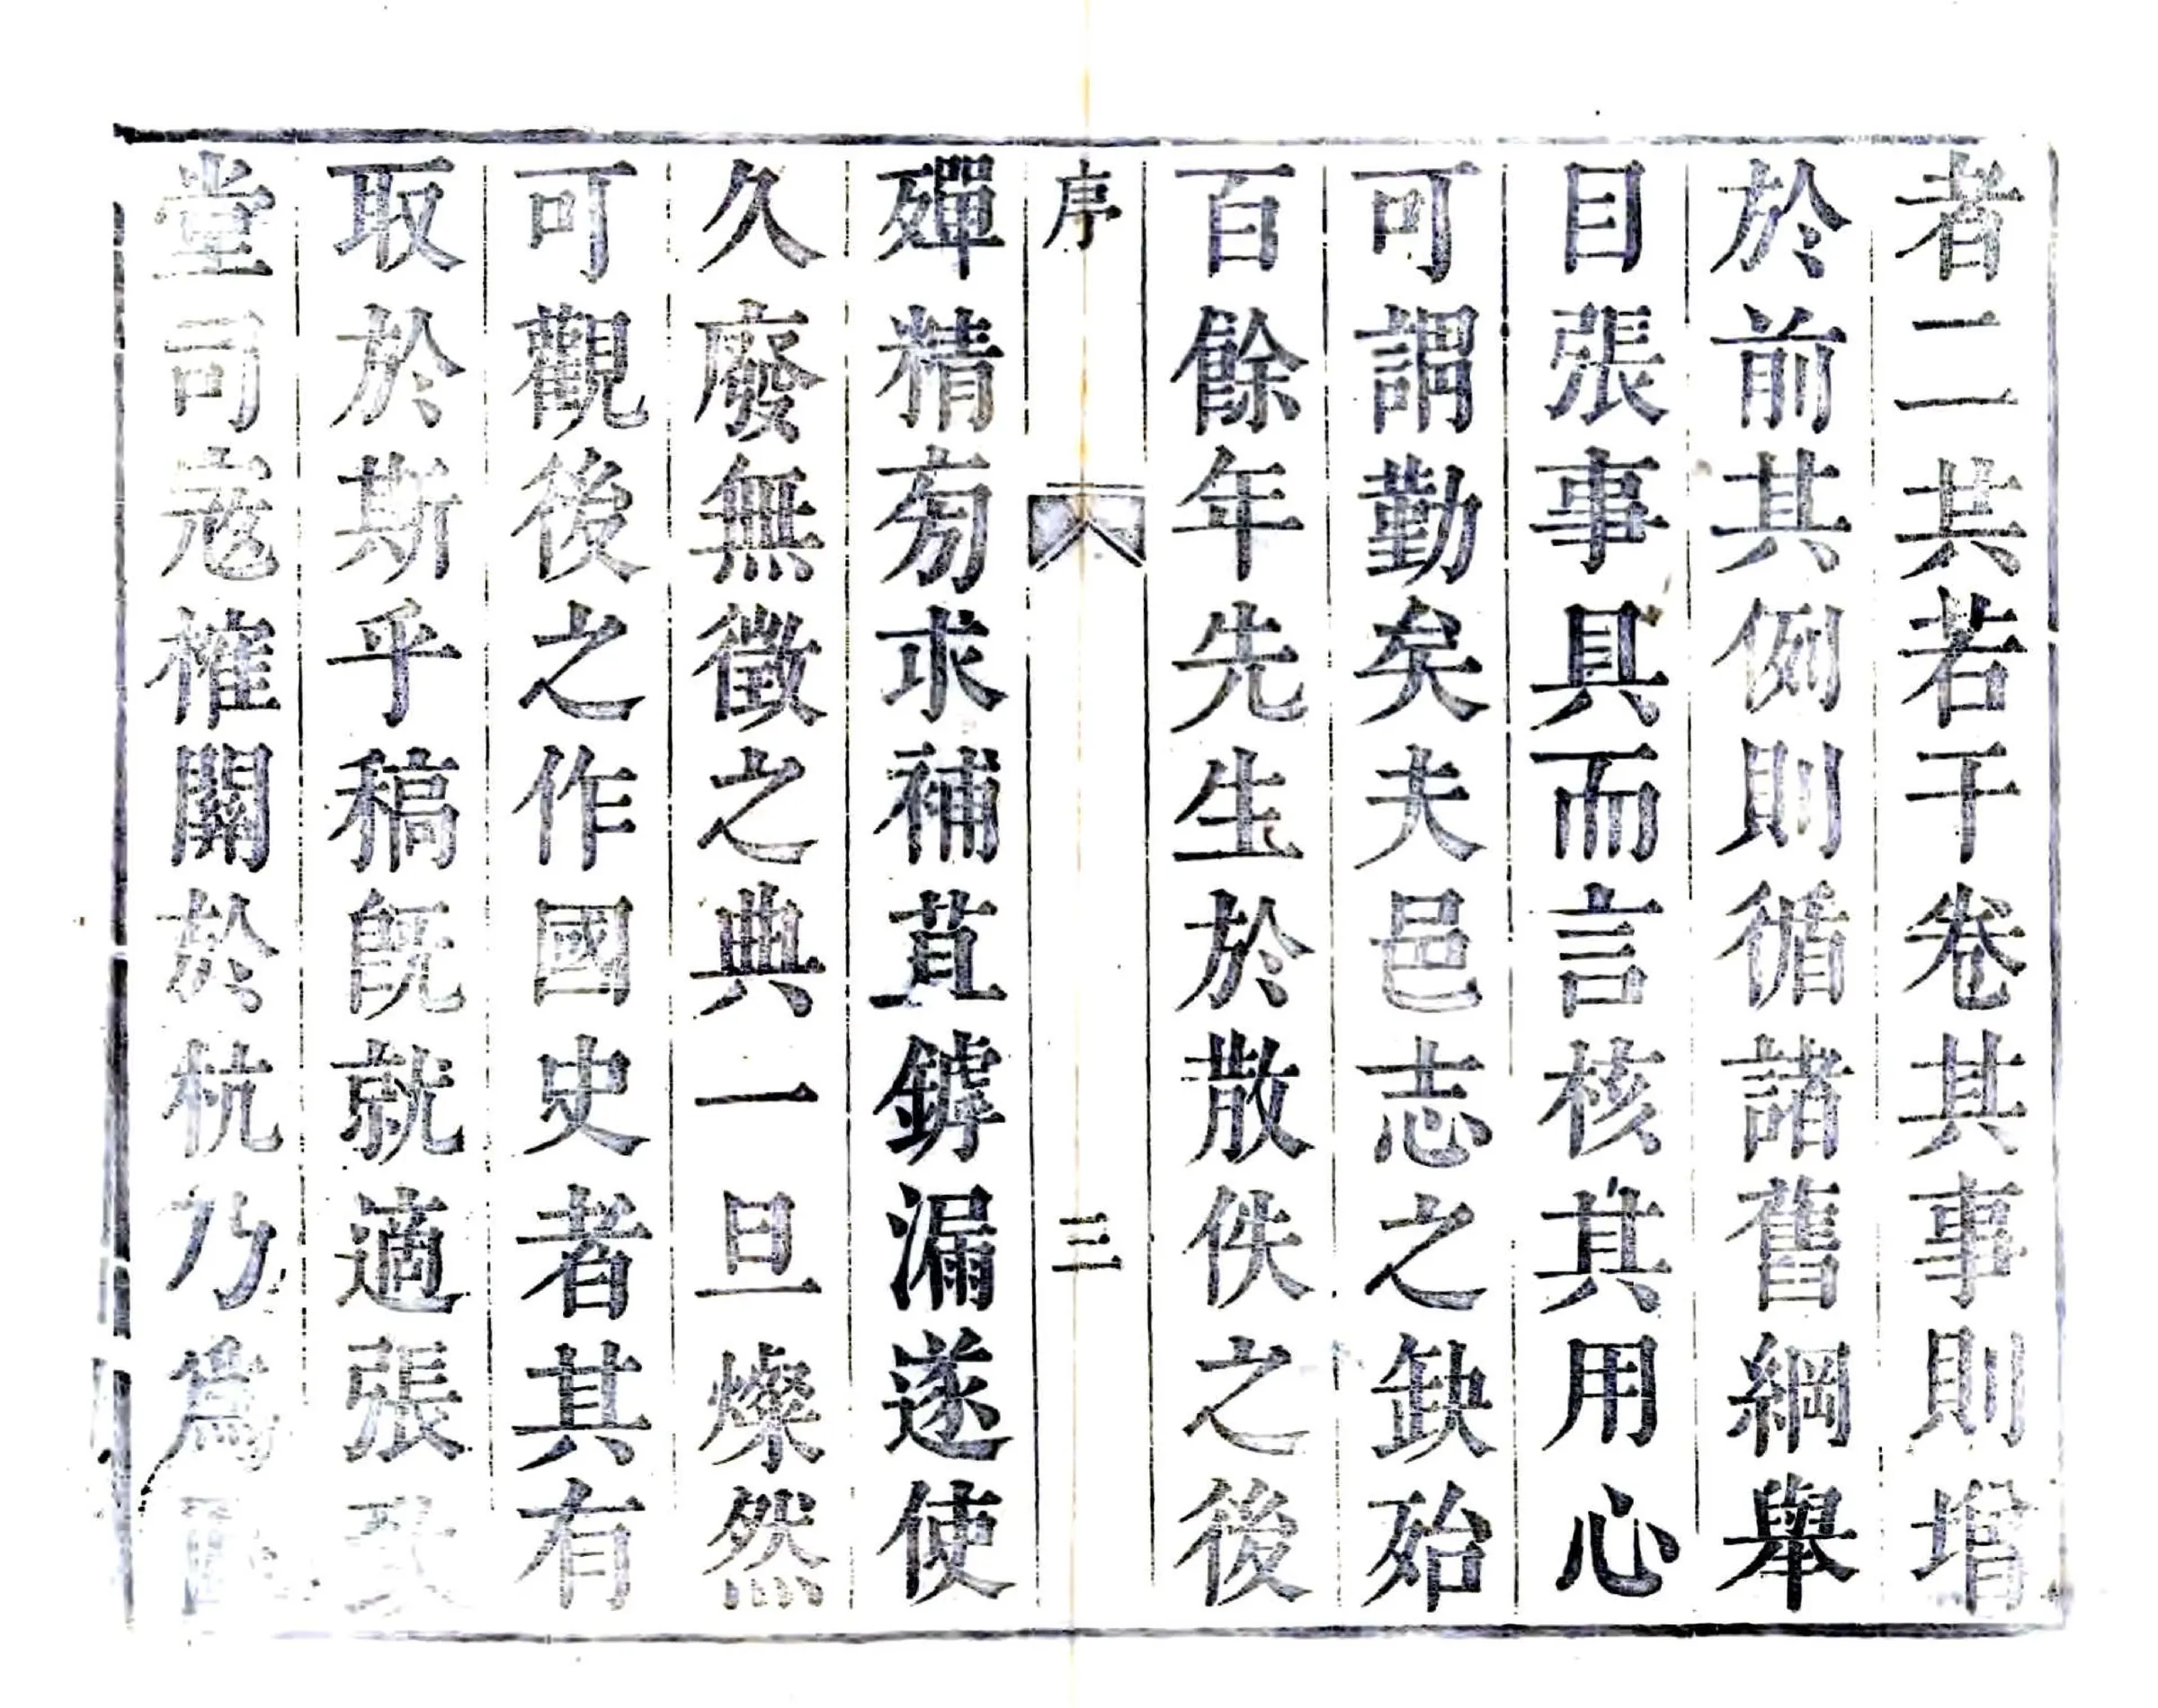 者二共若干卷其事則增
於前其例則循諸舊綱舉
目張事具而言核其用心
可謂勤矣夫邑志之缺殆
百餘年先生於散佚之後
序
三
殫精旁求補苴罅漏遂使
久廢無徵之典一旦燦然
可觀後之作國史者其有
取於斯乎稿既就適張
堂司寇榷關於杭乃為